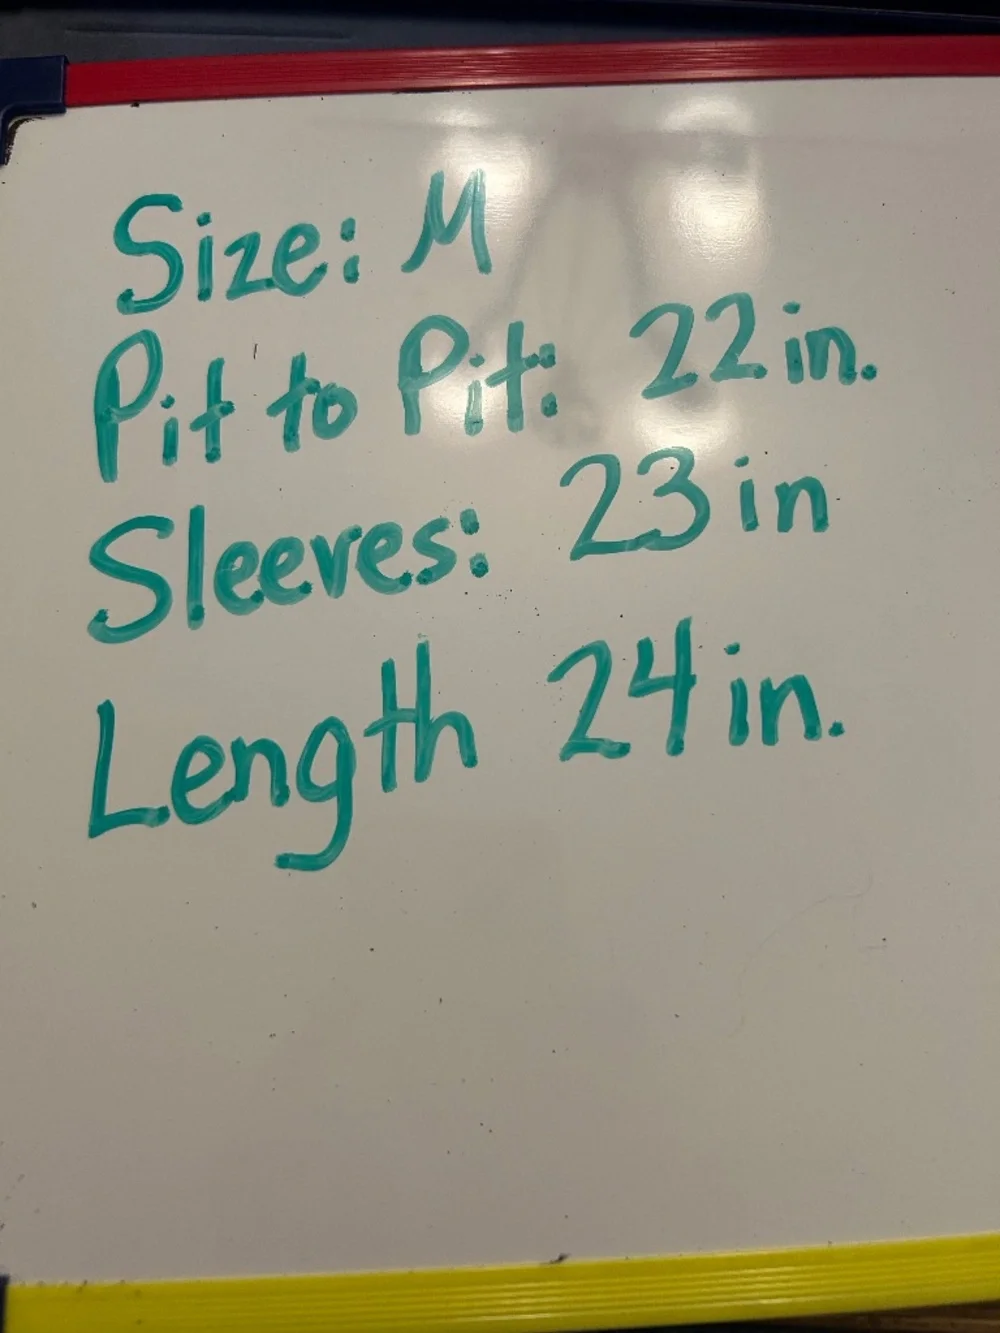 Size: M
Pit to Pit: 22 in.
Sleeves: 23 in
Length 24 in.